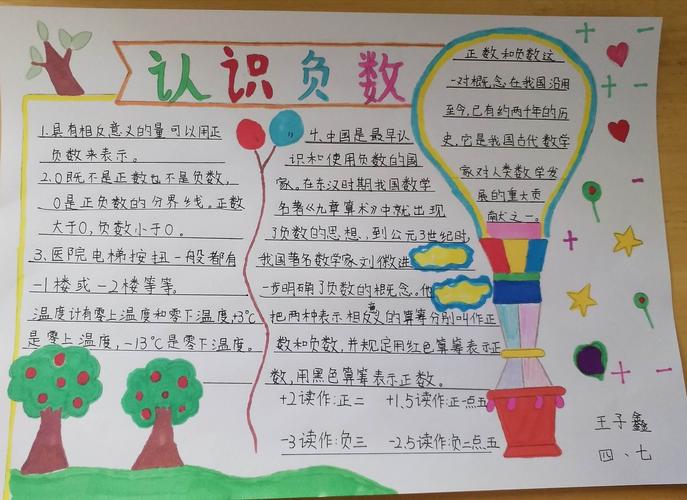 认识负数
1.具有相反意义的量可以用正
负数来表示。
2.0既不是正数也不是负数,
0是正负数的分界线。正数
大于0,负数小于0。
3、医院电梯按扭一般都有
-1楼或-2楼等等。
温度计有零上温度和零下温度,+3℃
是零上温度,-13℃是零下温度。
4.中国是最早认
识和使用负数的国
家。在东汉时期我国数学
名著《九章算术》中就出现
了负数的思想,到公元3世纪时,
我国著名数学家刘徽进
一步明确了负数的概念。他
把两种表示相反意的算筹分别叫作正
数和负数,并规定用红色算筹表示正
数,用黑色算筹表示正数。
+2读作:正二 +1.5读作:正一点五
-3读作:负三 -2.5读作:负二点五
正数和负数这
一对概念在我国沿用
至今,已有约两千年的历
史,它是我国古代数学
家对人类数学发
展的重大贡
献之一。
王子鑫
四、七